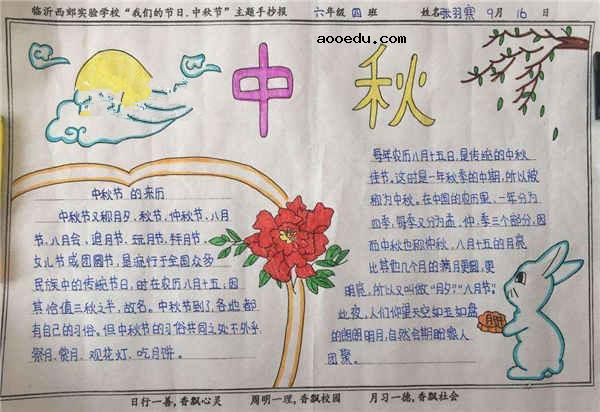 临沂西郊实验学校“我们的节日.中秋节”主题手抄报 六年级 四 班 姓名张羽寒 9月 16 日
aooedu.com
中秋
中秋节 的来历
中秋节又称月夕、秋节、仲秋节、八月
节、八月会、追月节、玩月节、拜月节、
女儿节或团圆节,是流行于全国众多
民族中的传统节日,时在农历八月十五,因
其恰值三秋之半,故名。中秋节到了,各地都
有自己的习俗。但中秋节的习俗共同之处不外乎
祭月、赏月、观花灯、吃月饼。
每年农历八月十五日,是传统的中秋
佳节。这时是一年秋季的中期,所以被
称为中秋。在中国的农历里,一年分为
四季,每季又分为孟、仲、季三个部分,因
而中秋也称仲秋。八月十五的月亮
比其他几个月的满月更圆,更
明亮,所以又叫做“月夕”“八月节”。
此夜,人们仰望天空如玉如盘
的朗朗明月,自然会期盼家人
团聚。
月饼
日行一善,香飘心灵 周明一理,香飘校园 月习一德,香飘社会